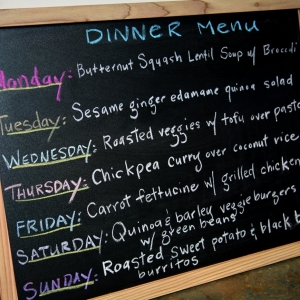 DINNER Menu
Monday: Butternut Squash Lentil Soup w/ Broccoli
Tuesday: Sesame ginger edamame quinoa salad
WEDNESDAY: Roasted veggies w/ tofu over pasta
THURSDAY: Chickpea curry over coconut rice
FRIDAY: Carrot fettucine w/ grilled chicken
SATURDAY: Quinoa & barley veggie burgers
w/ green beans
SUNDAY: Roasted sweet potato & black b
burritos